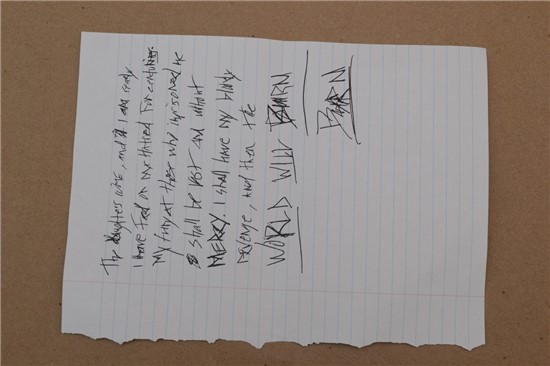 The daughters , and I am ready
I have Feed on my Hatred For centuries.
My fury at those who imprisoned me
shall be vast and without
MERCY. I shall have my bloody
revenge, and then the
WORLD WILL BURN
BURN